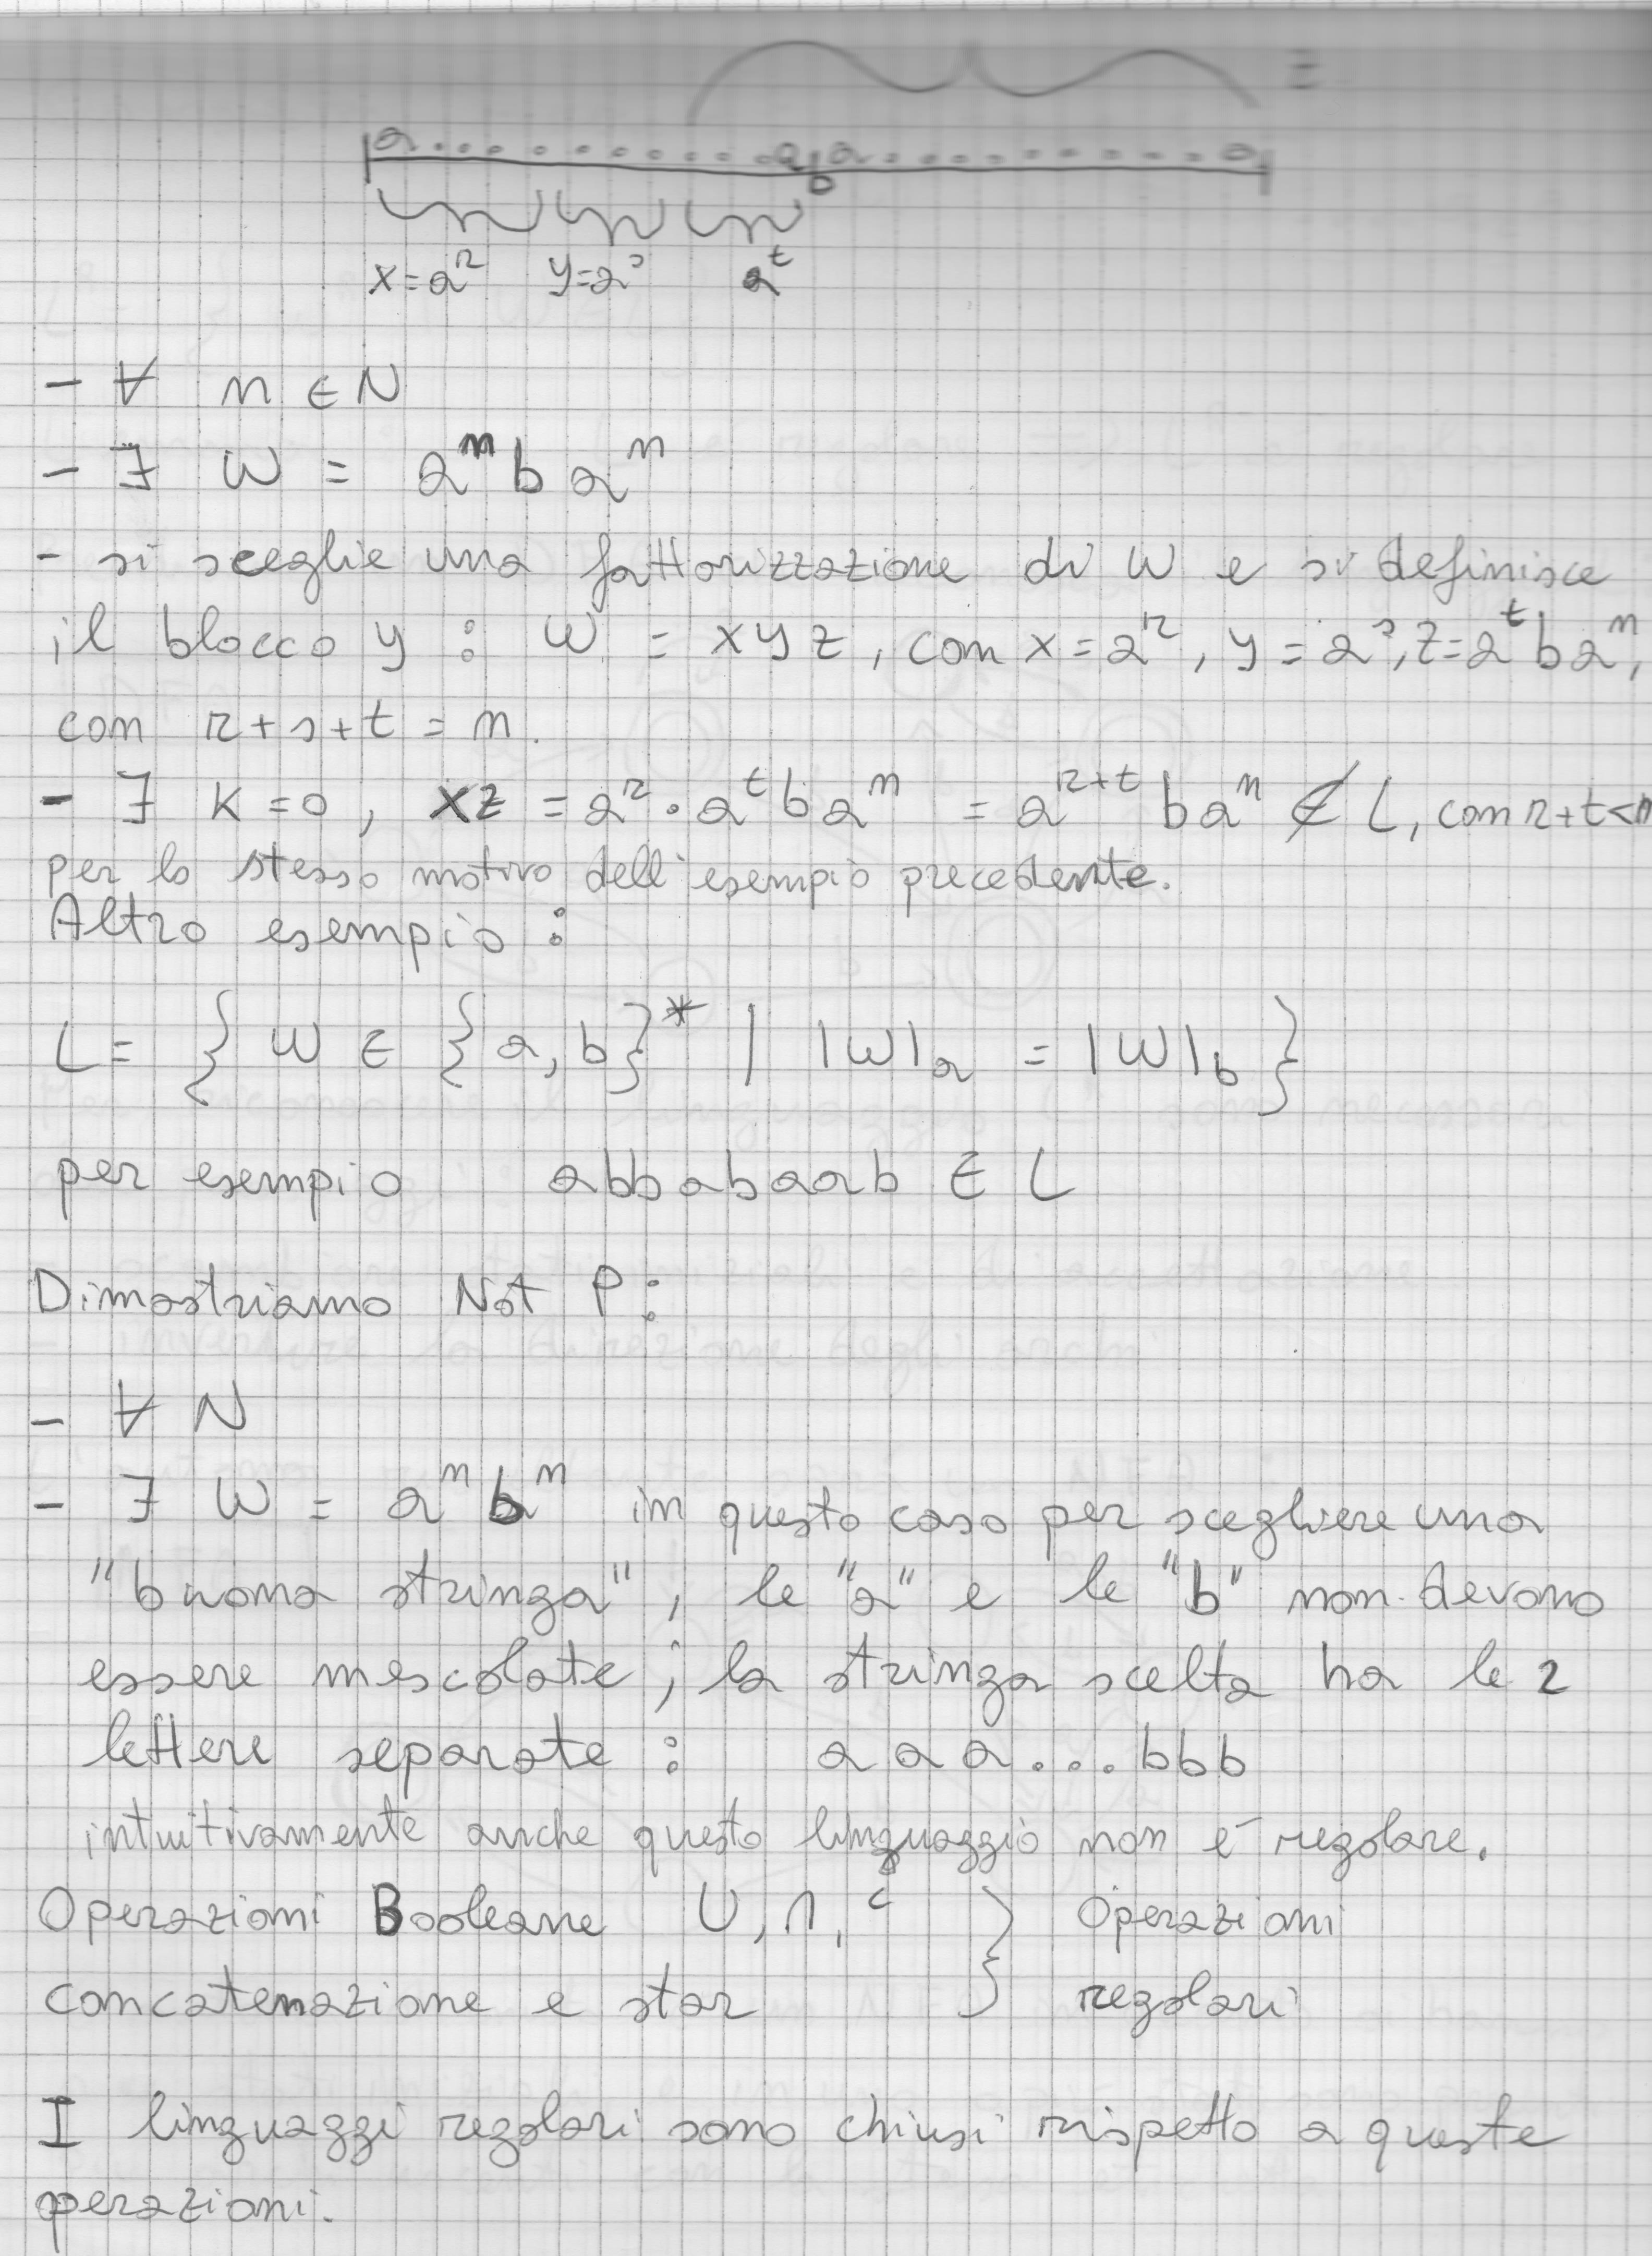 z
a.............a b a.............a
x=a^r y=a^s a^t
- ∀ n ∈ N
- ∃ w = a^n b a^n
- si sceglie una fattorizzazione di w e si definisce
il blocco y : w = xyz, con x=a^r, y=a^s, z=a^t b a^n,
con r+s+t = n.
- ∃ k=0, xz = a^r · a^t b a^n = a^{r+t} b a^n ∉ L, con r+t<n
per lo stesso motivo dell'esempio precedente.
Altro esempio :
L = { w ∈ {a,b}* | |w|_a = |w|_b }
per esempio abbabaab ∈ L
Dimostriamo Not P :
- ∀ N
- ∃ w = a^n b^n in questo caso per scegliere una
"buona stringa", le "a" e le "b" non devono
essere mescolate; la stringa scelta ha le 2
lettere separate : a a a ... b b b
intuitivamente anche questo linguaggio non è regolare.
Operazioni Booleane ∪, ∩, ^c } Operazioni
concatenazione e star } regolari
I linguaggi regolari sono chiusi rispetto a queste
operazioni.